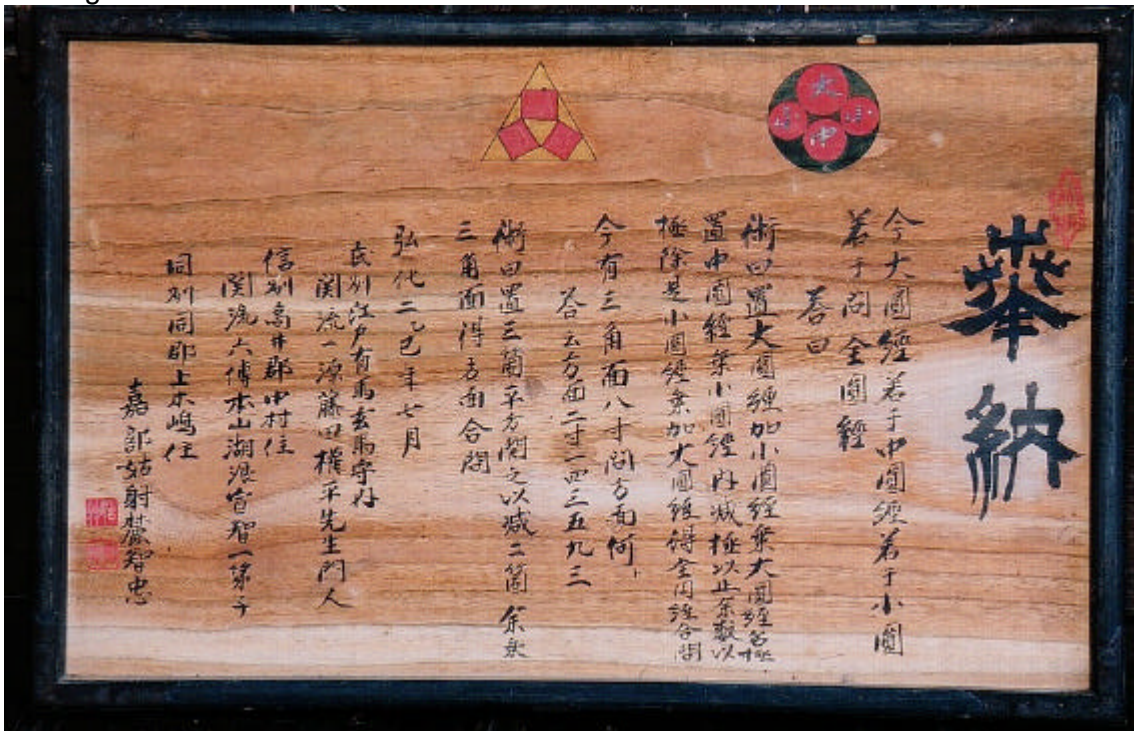 奉納
大
小
小
中
今大圓經若于中圓經若于小圓
若于問全圓經
答曰
術曰置大圓經加小圓經乗大圓經名極
置中圓經乗小圓經内減極以止余数以
極除是小圓經乗加大圓經得全円經合問
今有三角面八寸問方面何
答云方面二寸一四三五九三
術曰置三箇平方開之以減二箇余乗
三角面得方面合問
弘化二乙巳年七月
武州江戸有馬玄馬守内
関流一源藤田権平先生門人
信州高井郡中村住
関流六傅木山湖浪宜智一第子
同州同郡上木嶋住
嘉部姑射麓智忠